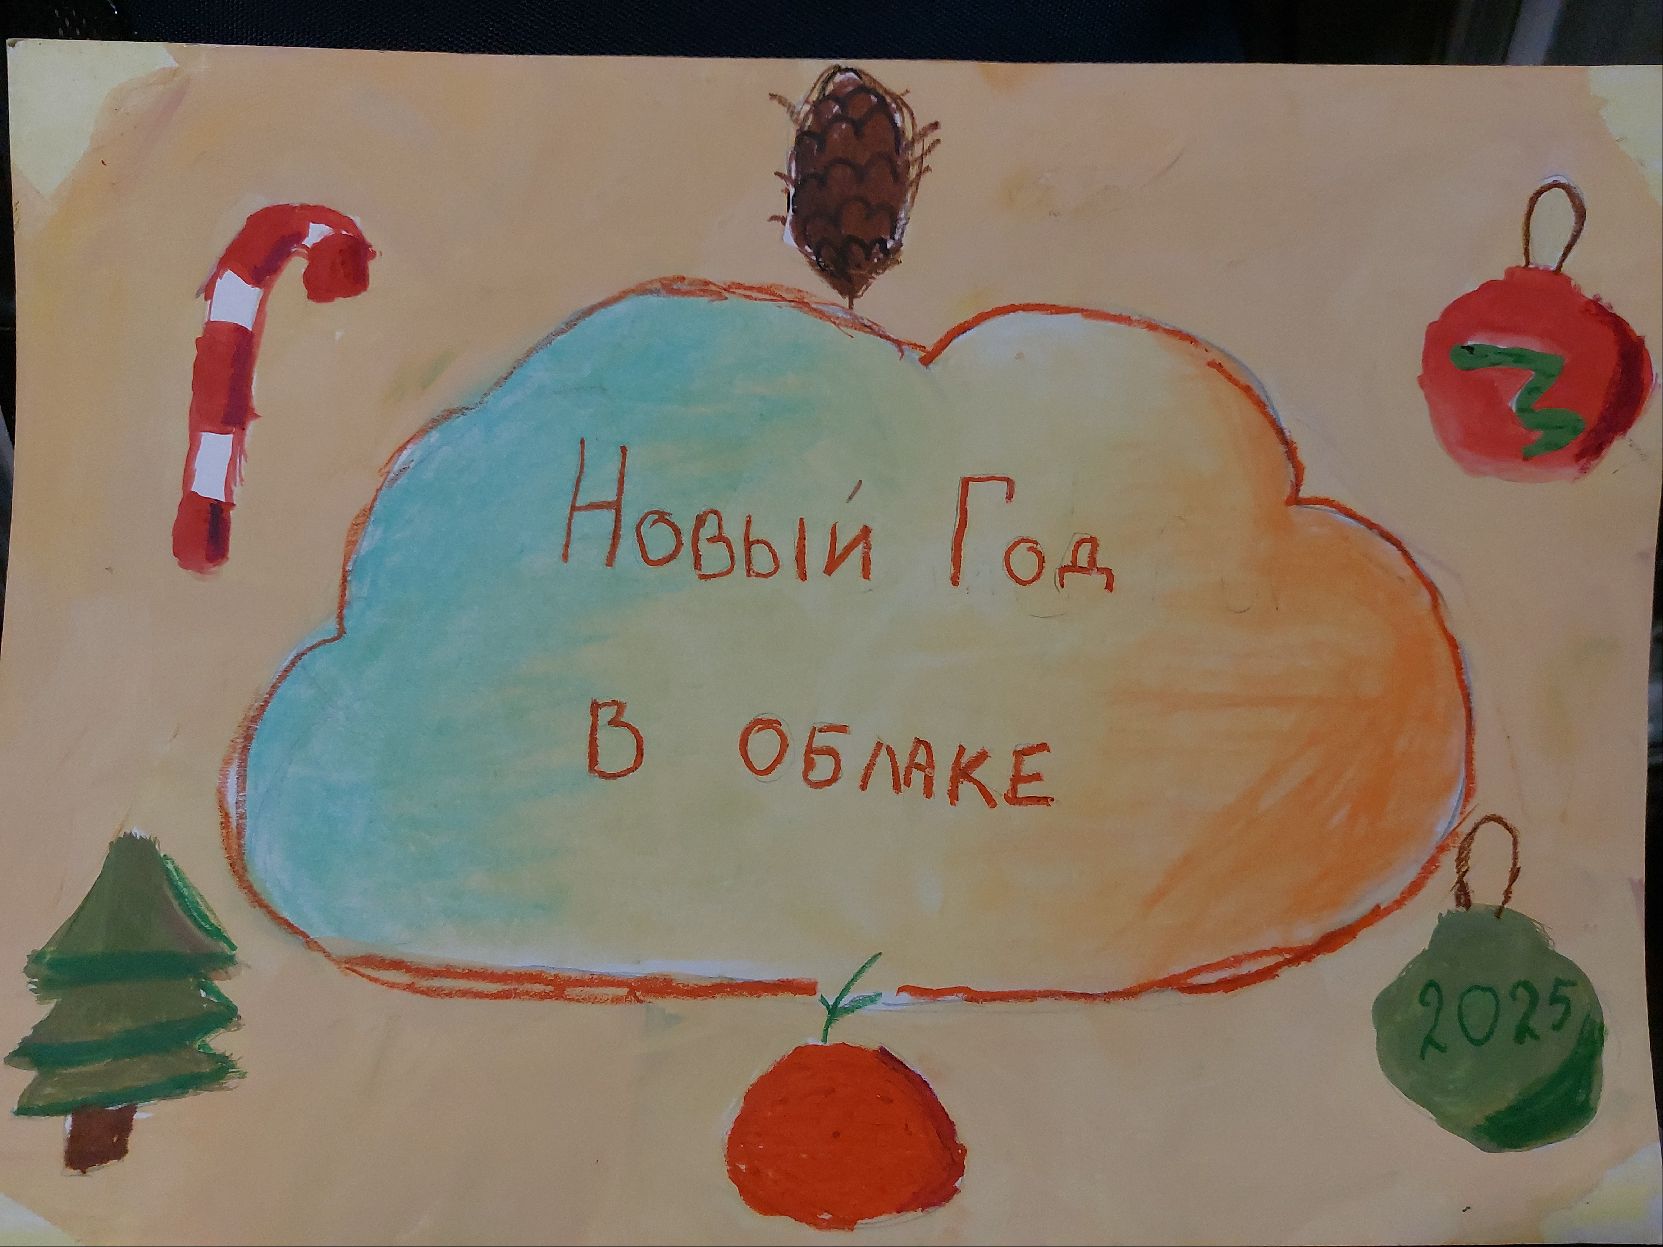 Новый Год
В ОБЛАКЕ
2025